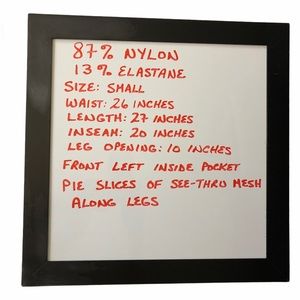 87% NYLON
13% ELASTANE
SIZE: SMALL
WAIST: 26 INCHES
LENGTH: 27 INCHES
INSEAM: 20 INCHES
LEG OPENING: 10 INCHES
FRONT LEFT INSIDE POCKET
PIE SLICES OF SEE-THRU MESH
ALONG LEGS